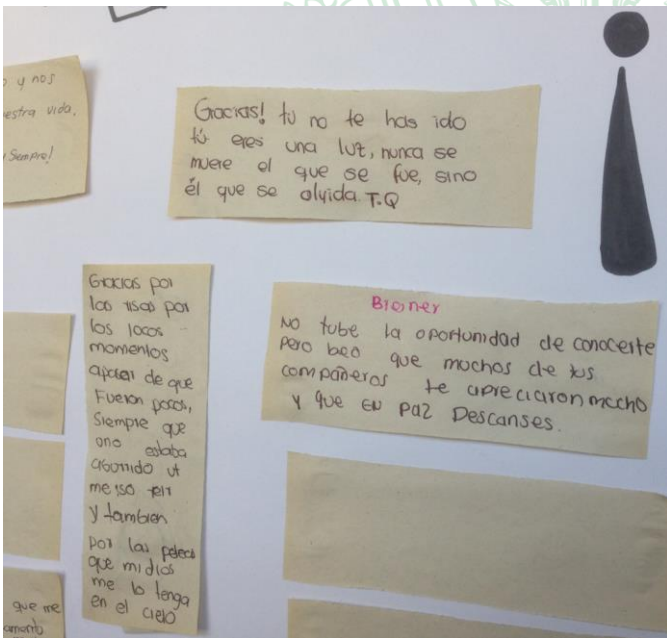 y nos
estra vida.
Siempre!
Gracias! tú no te has ido
tú eres una luz, nunca se
muere el que se fue, sino
él que se olvida. T.Q
Gracias por
las risas por
los locos
momentos
apesar de que
Fueron pocos,
Siempre que
uno estaba
aburrido ut
me iso reir
y tambien
por las peleas
que mi dios
me lo tenga
en el cielo
Bioner
No tube la oportunidad de conocerte
Pero beo que muchos de tus
compañeros te apreciaron mucho
y que EN PAZ Descanses.
que me